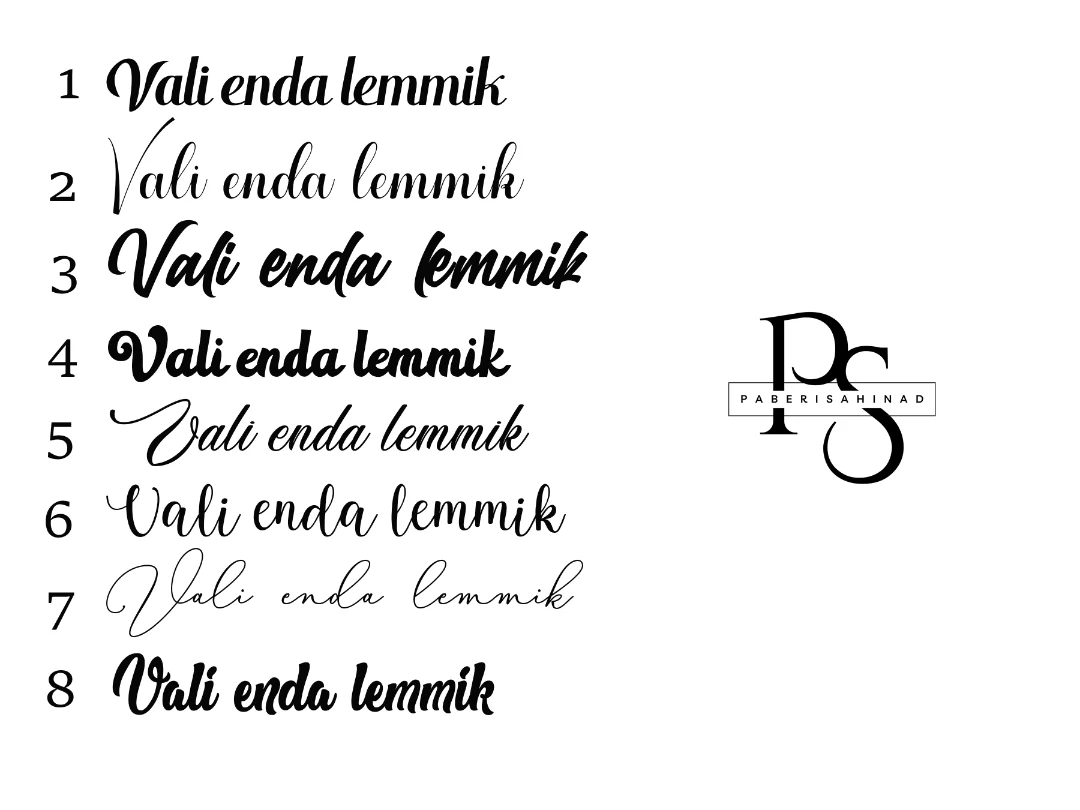 1 Vali enda lemmik
2 Vali enda lemmik
3 Vali enda lemmik
4 Vali enda lemmik
5 Vali enda lemmik
6 Vali enda lemmik
7 Vali enda lemmik
8 Vali enda lemmik
PS
PABERISAHINAD